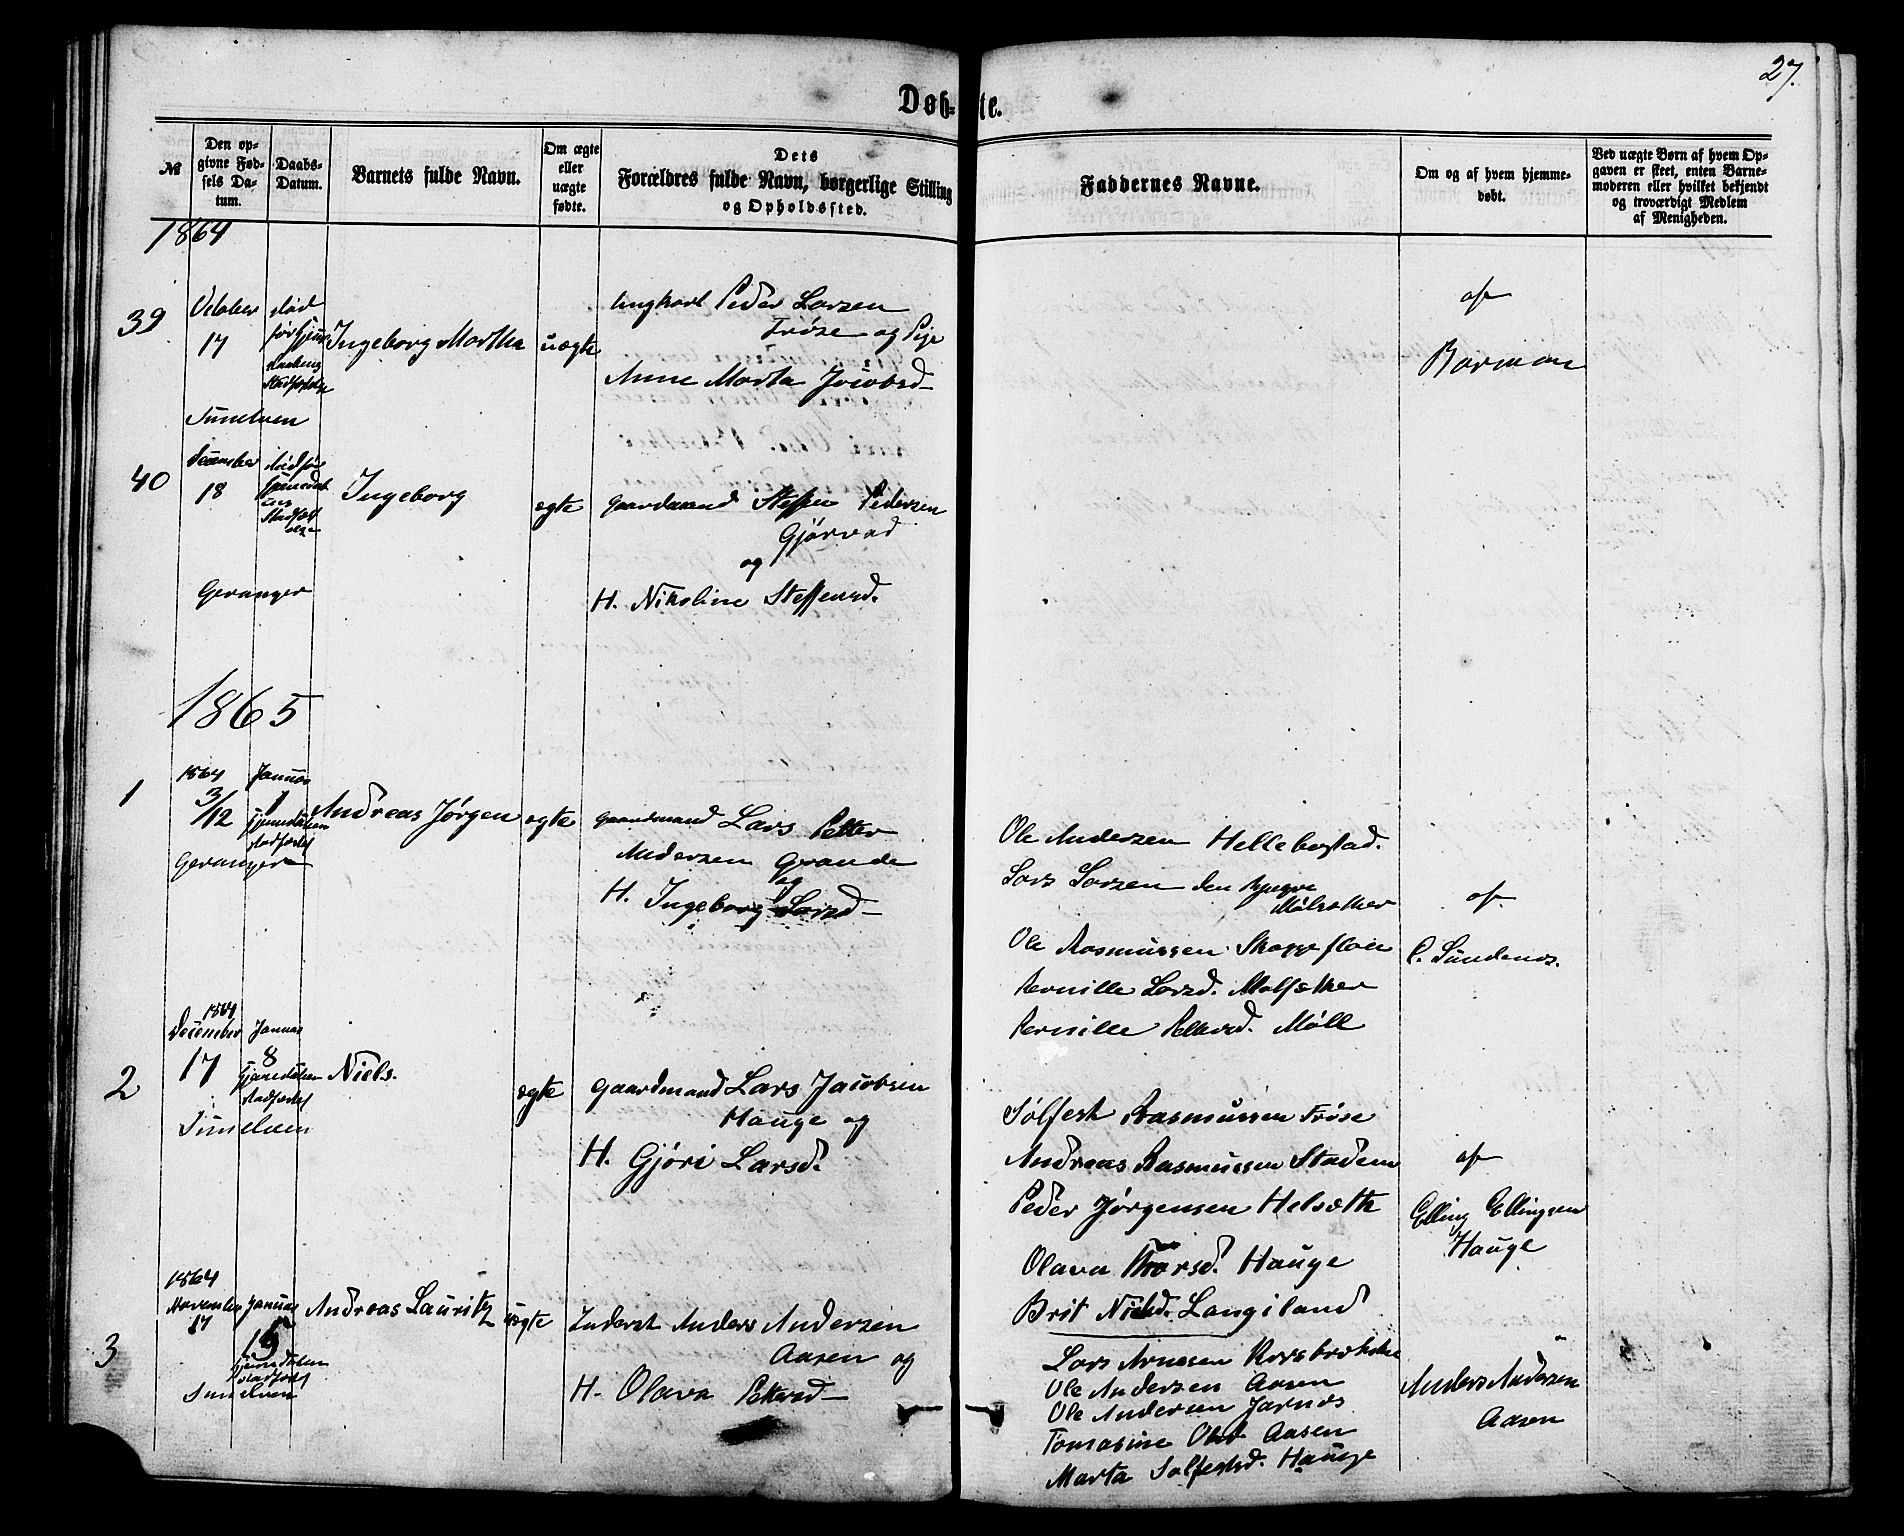 27.
Døb-te.
№
Den op-
givne Fød-
sels Da-
tum.
Daabs-
Datum.
Barnets fulde Navn.
Om ægte
eller
uægte
fødte.
Dets
Forældres fulde Navn, borgerlige Stilling
og Opholdssted.
Faddernes Navne.
Om og af hvem hjemme-
døbt.
Ved uægte Børn af hvem Op-
gaven er skeet, enten Barne-
moderen eller hvilket bekjendt
og troværdigt Medlem
af Menigheden.
1864
39
October
17
Sunelven
død
før
Stadfæstelse
Ingeborg Martha
uægte
Ungkarl Peder Larsen
Frøse og Pige
Anne Marta Jacobsd
af
40
December
18
Geranger
død før
Gjenedaab
Stadfæst
else
Ingeborg
ægte
Gaardmand Steffen Pedersen
Gjørvad
og
H. Nikoline Steffensd.
1865
1
1864
3/12
Geranger
Januar
1
Gjenedaaben
stadfæstet
Andreas Jørgen
ægte
Gaardmand Lars Petter
Andersen Grande
og
H. Ingeborg Larsd
Ole Andersen Hellebostad.
Lars Larsen den yngre
Ole Rasmussen Skageflaae
Pernille Larsd.
Pernille Pettersd. Møll
af
2
1864
December
17
Sunelven
Januar
8
Gjenedaaben
stadfæstet
Niels.
ægte
Gaardmand Lars Jacobsen
Hauge og
H. Gjøri Larsd.
Sølfest Rasmussen Frøse
Andreas Rasmussen Stadem
Peder Jørgensen Helsæth
Olava Hauge
Brit Nielsd. Langeland
af
Elling Ellingsen
Hauge
3
1864
November
17
Sunelven
Januar
15
Gjenedaaben
stadfæstet
Andreas Lauritz
ægte
Inderst Anders Andersen
Aasen og
H. Olava Pettersd
Lars Arnesen
Ole Andersen Aasen
Ole Andersen Jarnes
Tomasine Olsd Aasen
Marta Solfestsd. Hauge
Anders Andersen
Aasen